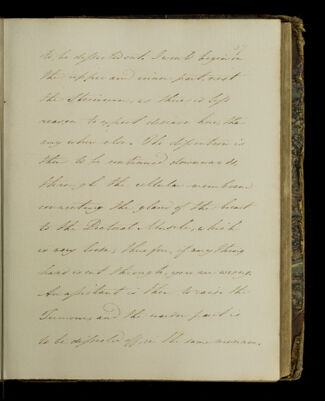 57
to be dissected out, I would begin in
the upper and inner part, next
the Sternum, as there is less
reason to expect disease here, than
any where else. The dissection is
then to be continued downwards
through the cellular membrane
connecting the gland of the breast
to the Pectoral Muscle, which
is very loose; therefore, if any thing
hard is cut through, you are wrong.
An assistant is then to raise the
Tumour, and the under part is
to be dissected off, in the same manner.